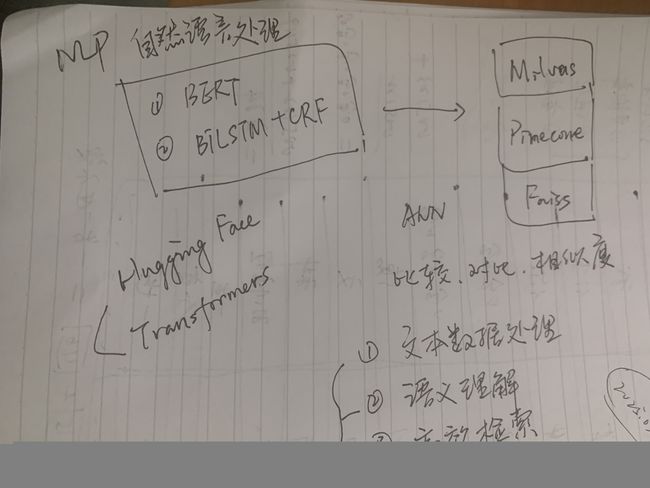 NLP 自然语言处理
① BERT
② BiLSTM+CRF
Milvus
Pinecone
Faiss
Hugging Face
Transformers
ANN
比较、对比、相似度
① 文本数据处理
② 语义理解
③ 高效检索